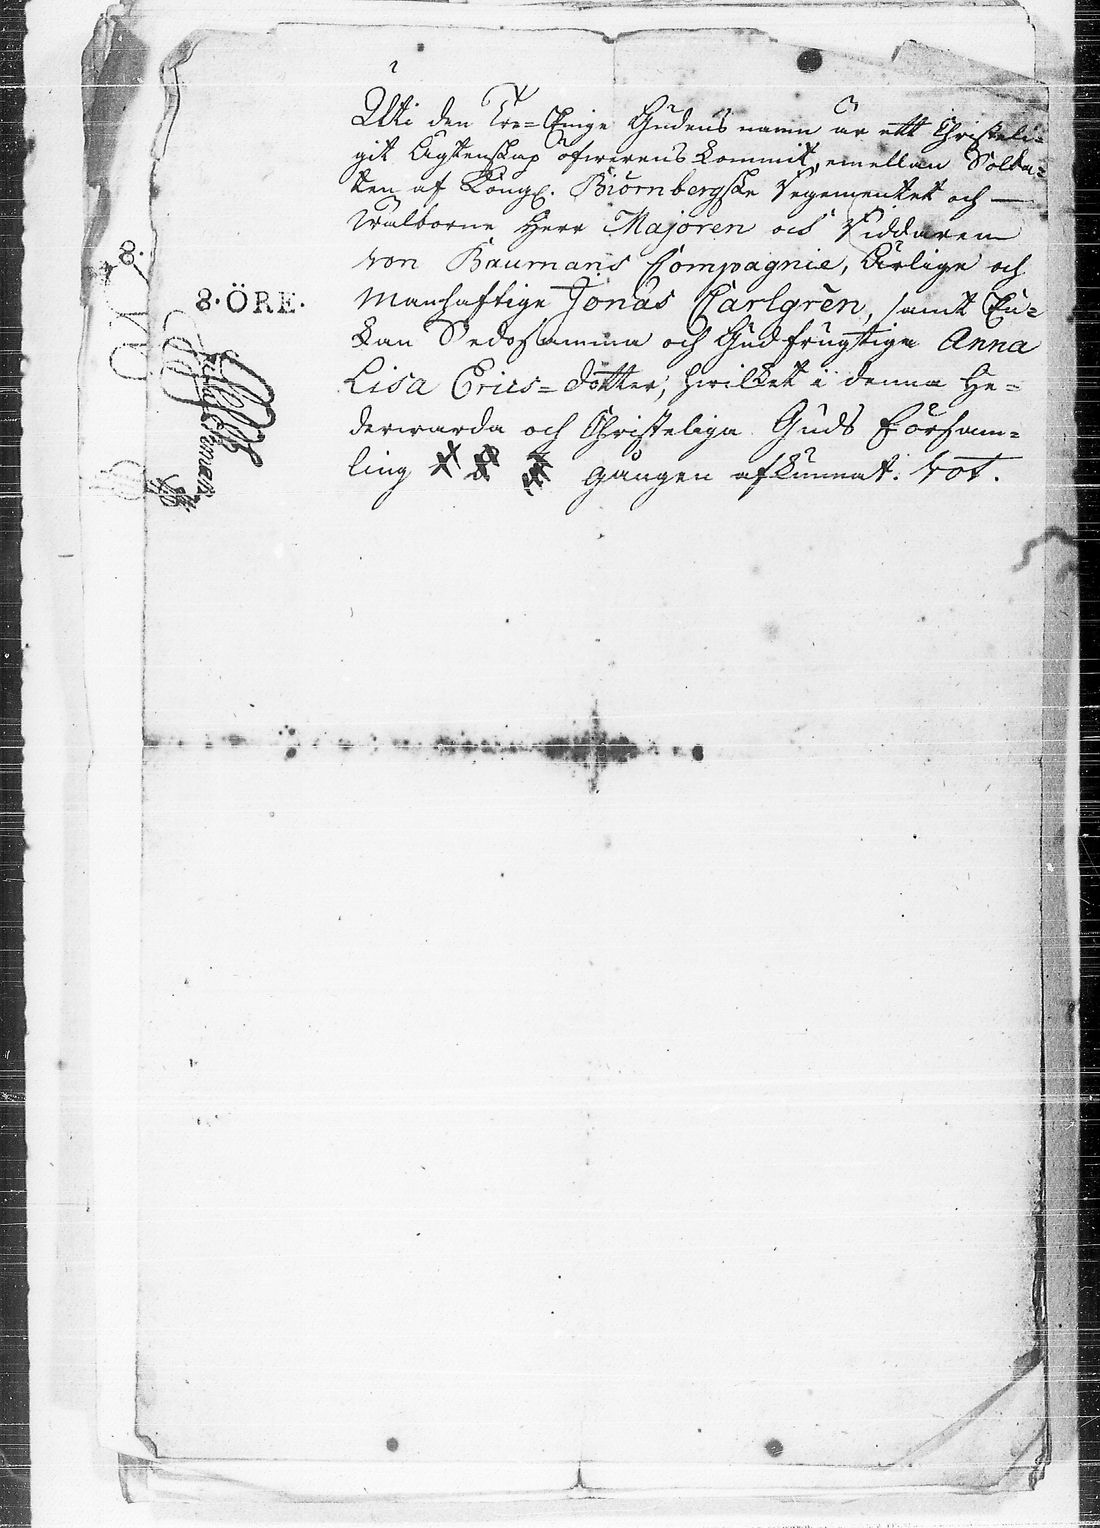 Uti den Tre-Enige Gudens namn är ett Christeli=
git Ägtenskap öfwerens kommit, emellan Solda=
ten af Kongl. Biörnbergske Regementet och —
Wälborne Herr Majoren och Riddaren
von Baumans Compagnie, Ärlige och
Manhaftige Jonas Carlgrèn, samt Pi=
gan Sedosamma och Gudfrugtiga Anna
Lisa Erics=dotter; hwilket i denna He=
derwarda och Christeliga Guds Försam=
ling gången afkunnat. vot.
8·ÖRE·
8.